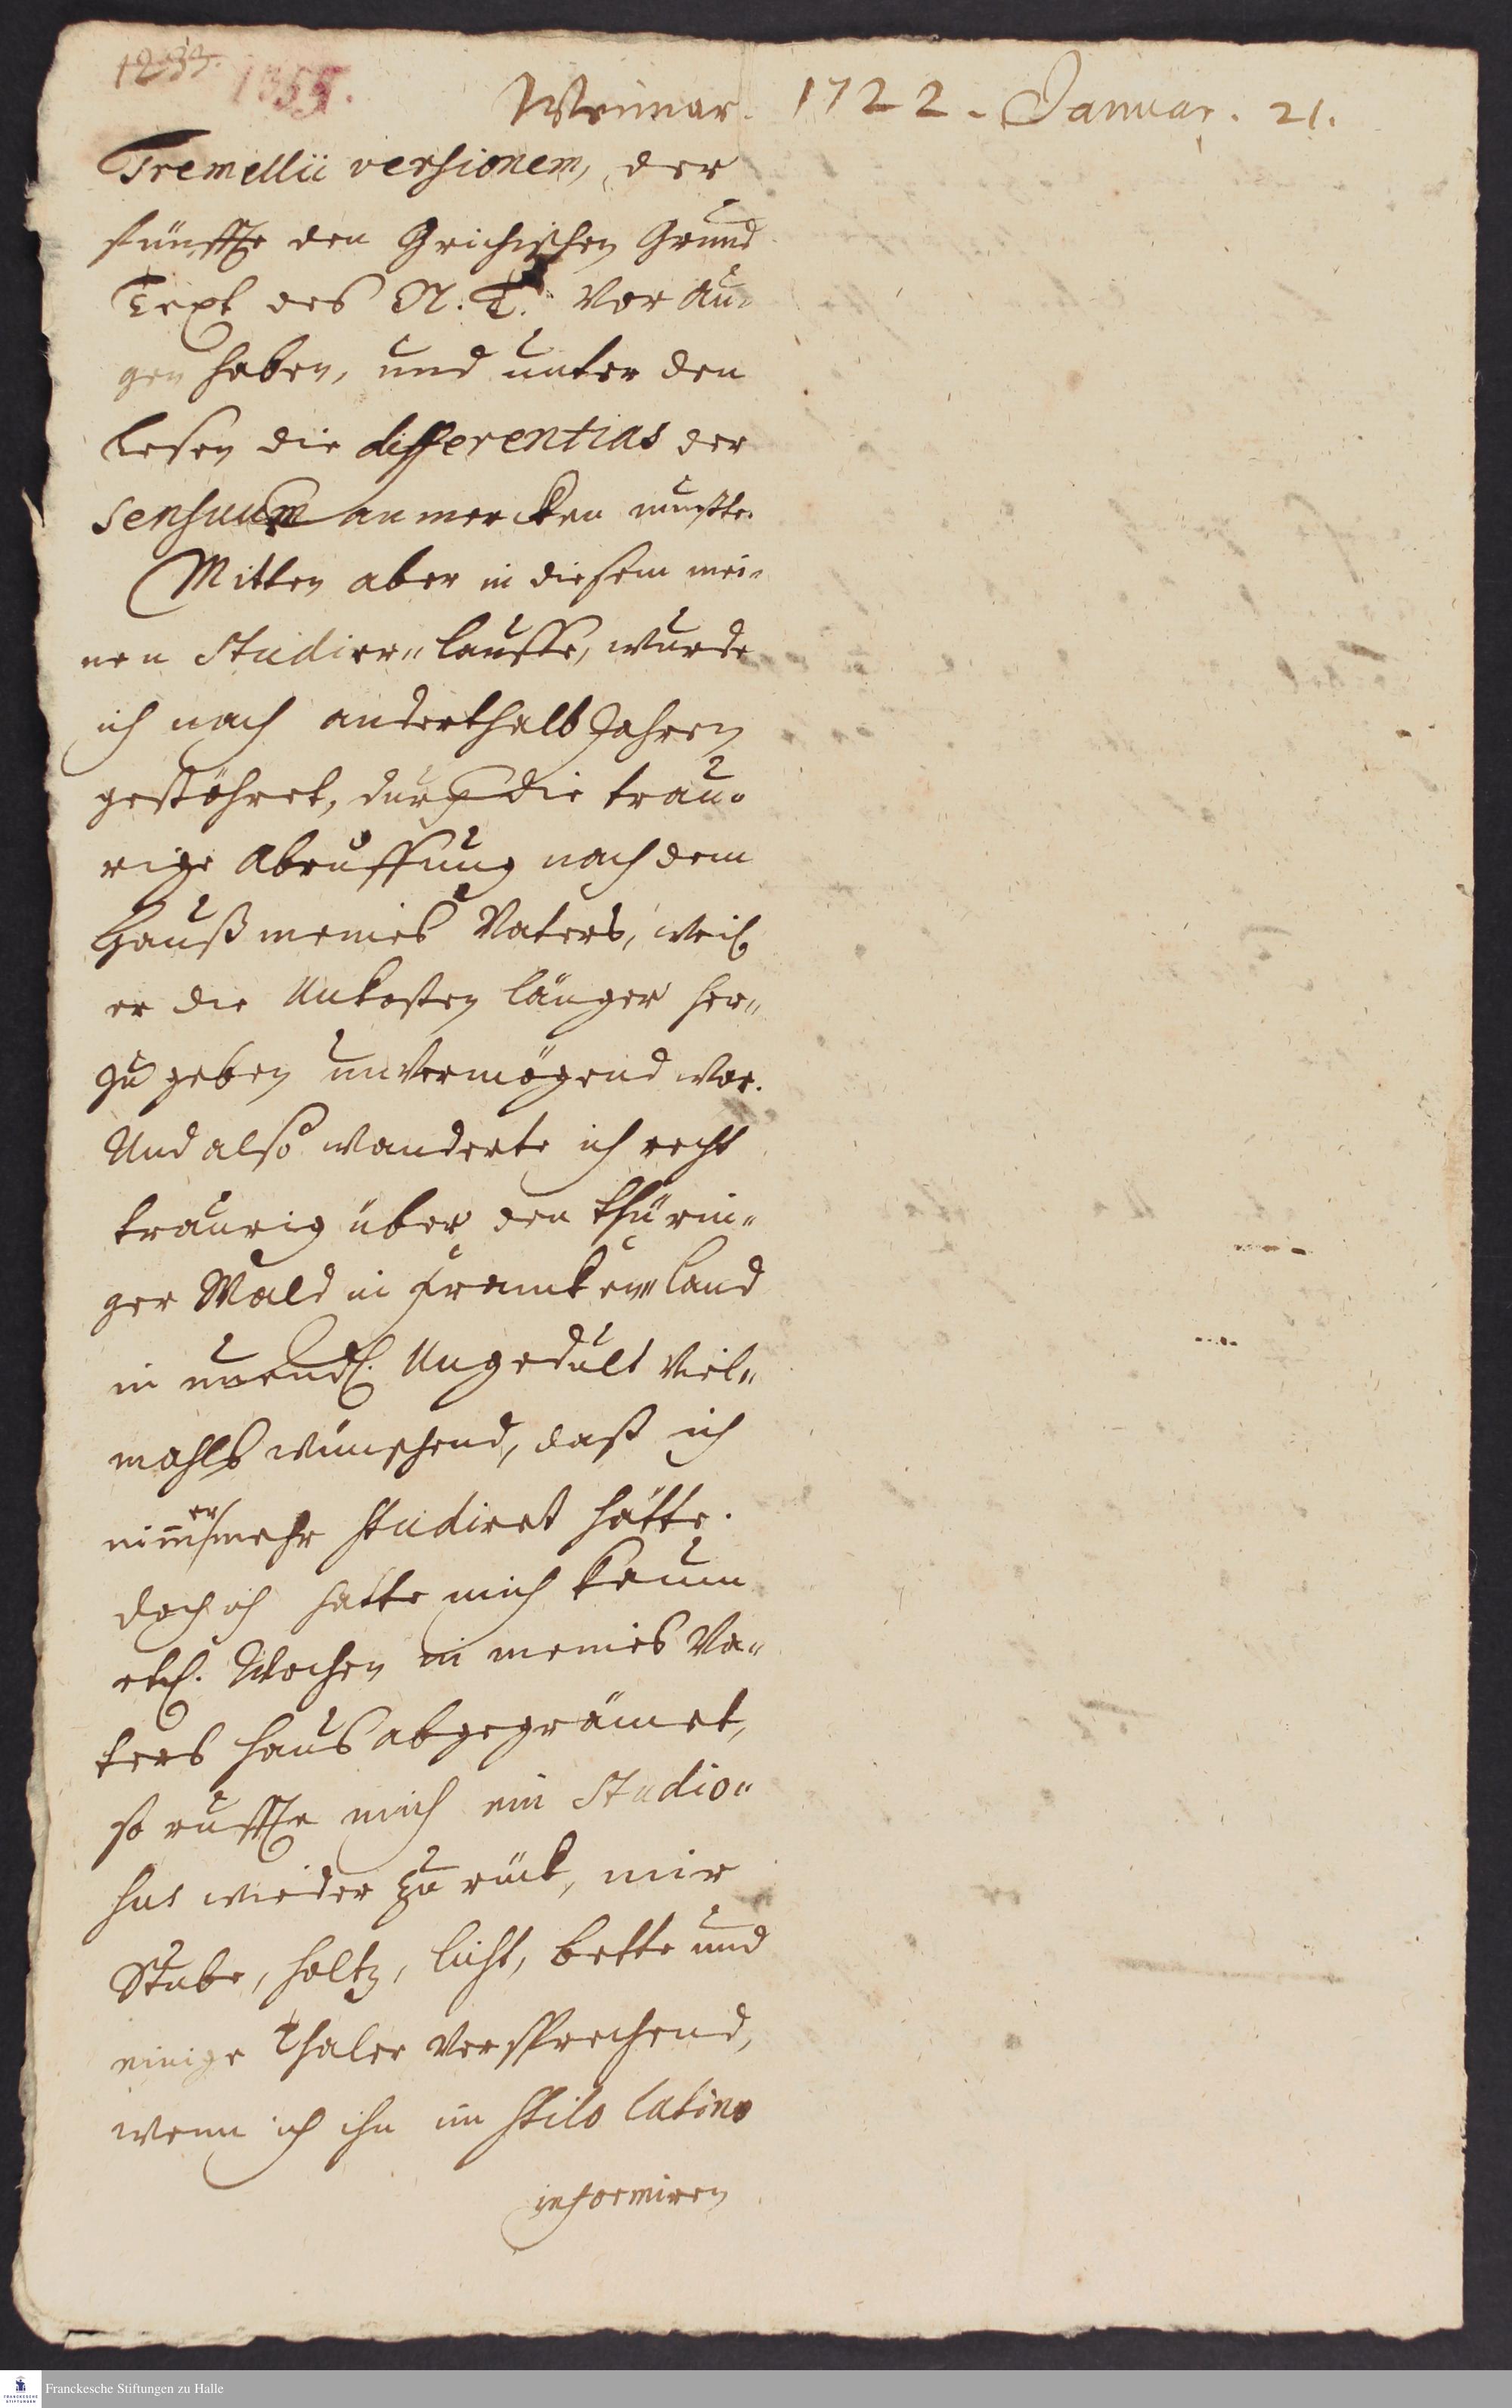 1233.
1355.
Weimar. 1722. Januar. 21.
Tremellii versionem, der
fünffte den Grichischen Grund
Text des N. T. vor Au-
gen haben, und unter den
Lesen die differentias der
sensuum anmercken muste.
Mitten aber in diesem mei-
nen Studier-lauffe, wurde
ich nach anderthalb Jahren
gestöhret, durch die trau-
rige Abruffung nach dem
Hauß meines Vaters, weil
er die Unkosten länger her-
zu geben unvermögend war.
Und also wanderte ich recht
traurig über den Thürin-
ger Wald in Francken-land
in Ungedult viel-
mahls wünschend, daß ich
nimmermehr studiret hätte.
doch ich hatte mich kaum
etl. Wochen in meines Va-
ters Haus abgegrämet,
so ruffte mich ein Studio-
sus wieder zurück, mir
Stube, Holtz, licht, bette und
einige Thaler versprechend,
wenn ich ihn im stilo latino
informiren
Franckesche Stiftungen zu Halle